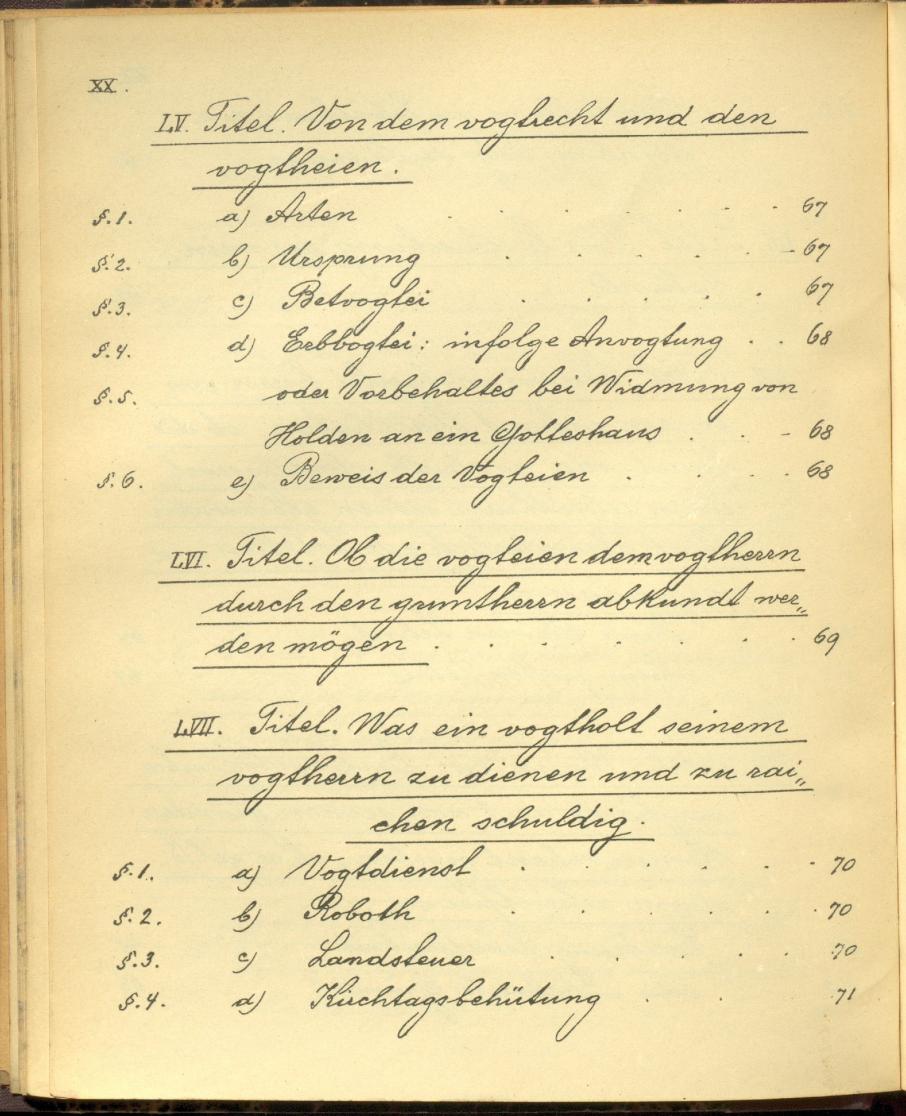 XX.
LV. Titel. Von dem vogtrecht und den
vogtheien.
§.1. a) Arten . . . . . . . 67
§.2. b) Ursprung . . . . . . 67
§.3. c) Betvogtei . . . . . 67
§.4. d) Erbbogtei: infolge Anvogtung . . 68
§.5. oder Vorbehaltes bei Widmung von
Holden an ein Gotteshaus . . . 68
§.6. e) Beweis der Vogteien . . . . 68
LVI. Titel. Ob die vogteien dem vogtherrn
durch den gruntherrn abkundt wer„
den mögen . . . . . . . . 69
LVII. Titel. Was ein vogtholt seinem
vogtherrn zu dienen und zu rai„
chen schuldig.
§.1. a) Vogtdienst . . . . . . 70
§.2. b) Roboth . . . . . . 70
§.3. c) Landsteuer . . . . . . 70
§.4. d) Kirchtagsbehütung . . . 71